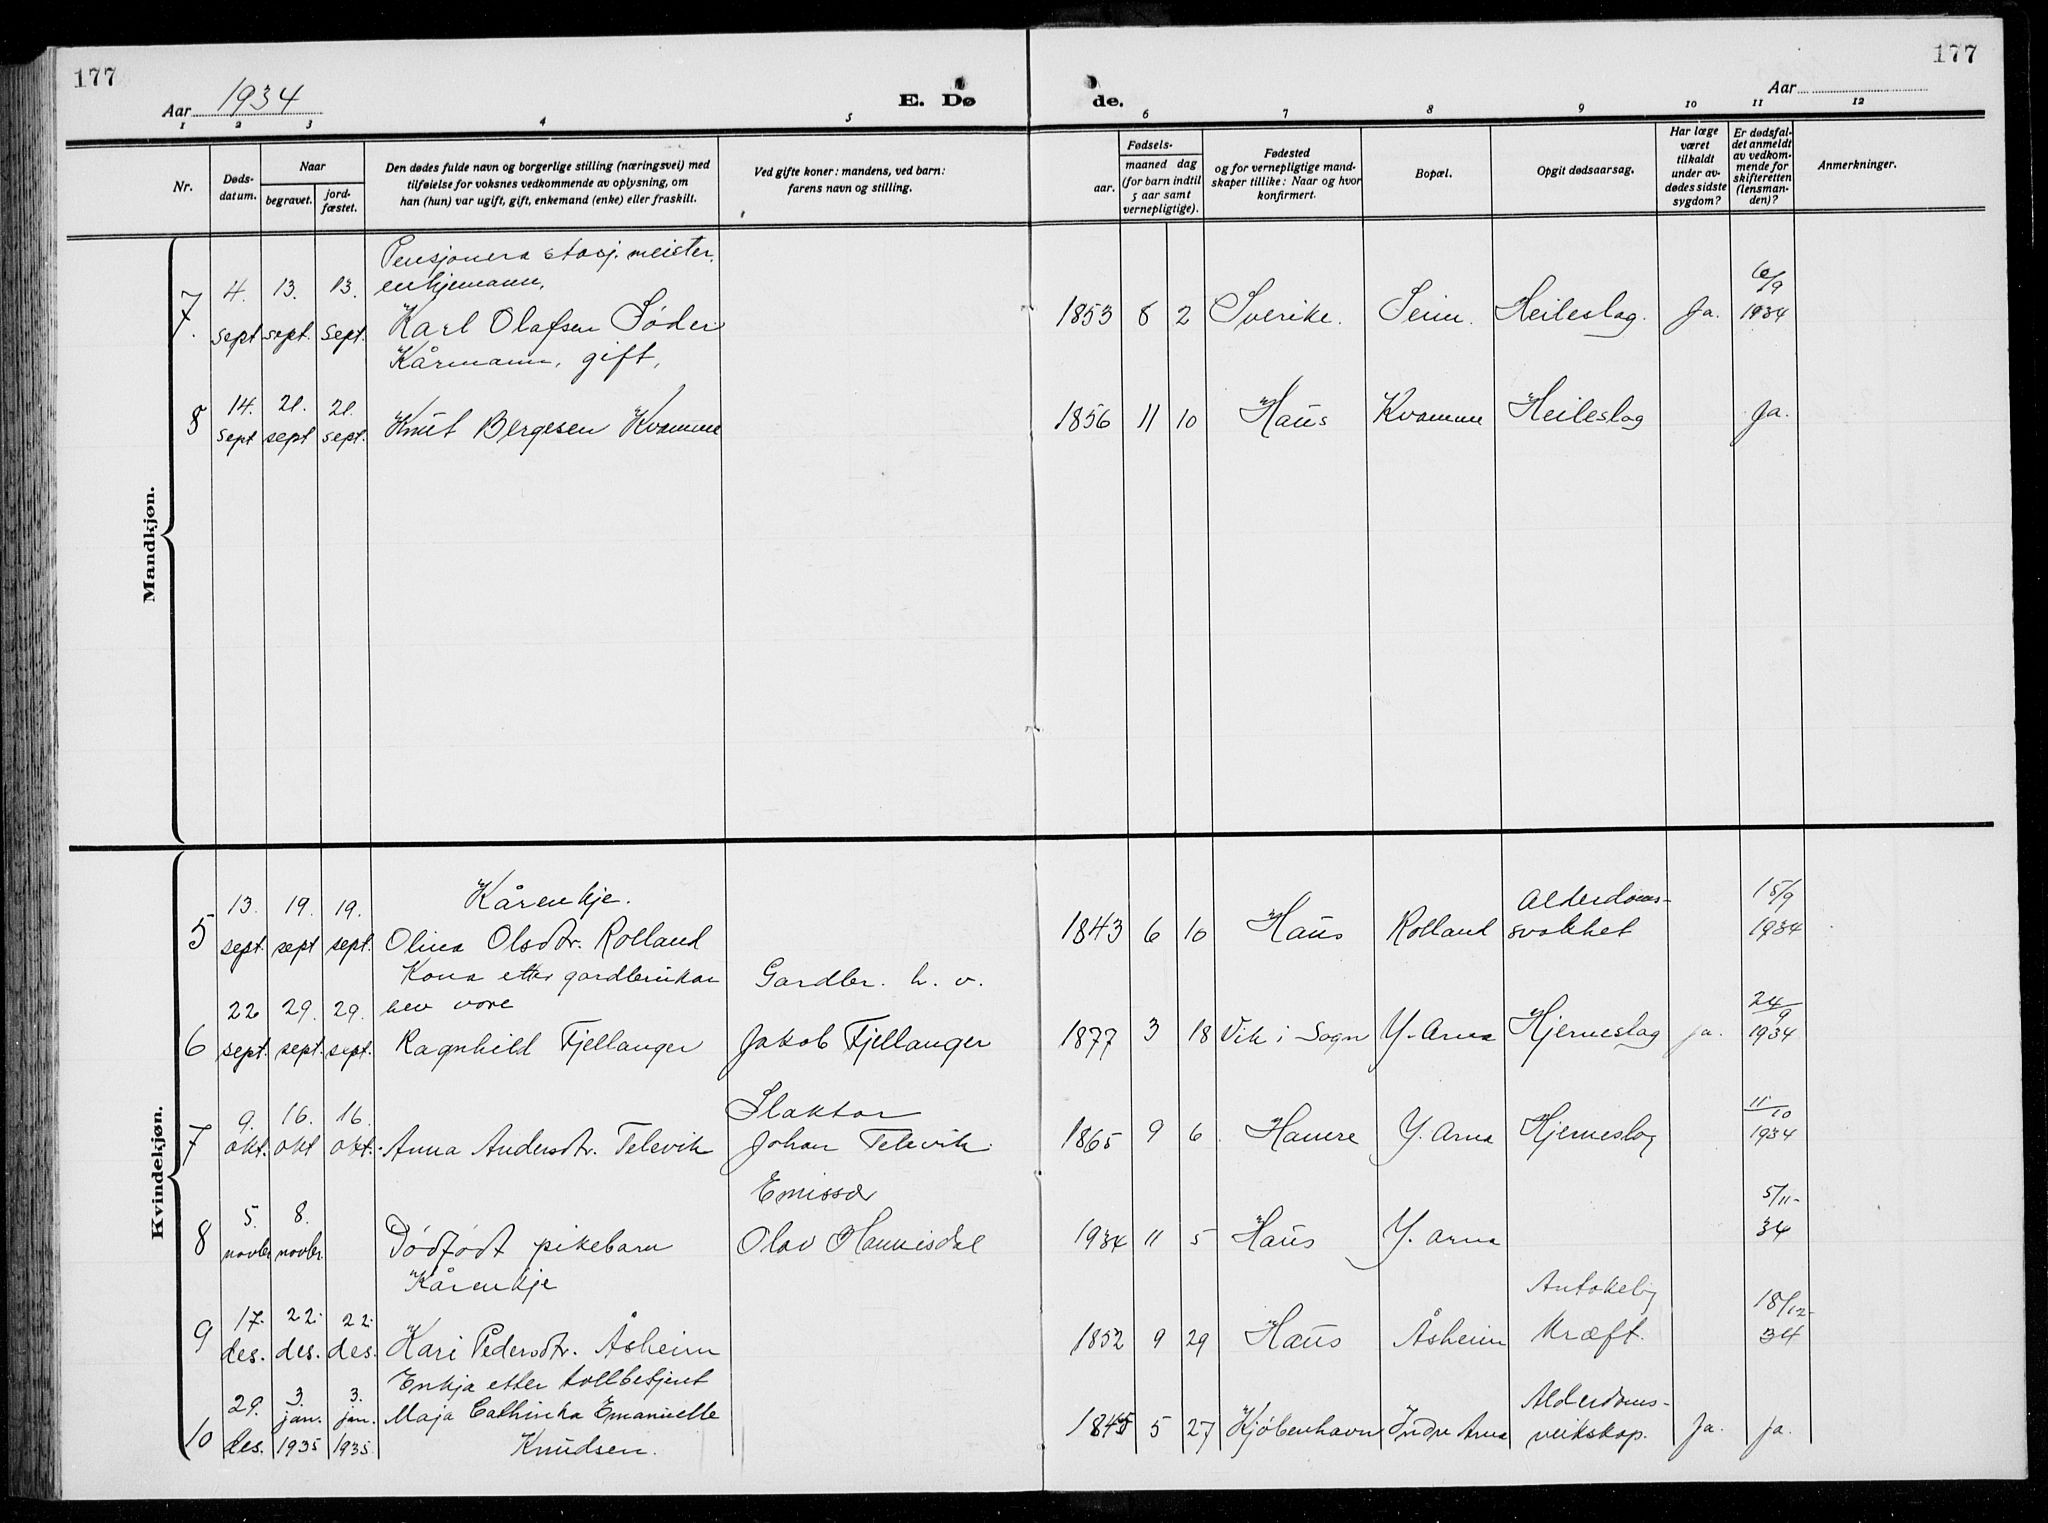 177
177
Aar 1934
E. Døde.
Aar
1 2 3 4 5 6 7 8 9 10 11 12
Nr.
Døds-
datum.
Naar
begravet.
jord-
fæstet.
Den dødes fulde navn og borgerlige stilling (næringsvei) med
tilføielse for voksnes vedkommende av oplysning, om
han (hun) var ugift, gift, enkemand (enke) eller fraskilt.
Ved gifte koner: mandens, ved barn:
farens navn og stilling.
Fødsels-
aar.
maaned dag
(for barn indtil
5 aar samt
vernepligtige).
Fødested
og for vernepligtige mand-
skaper tillike: Naar og hvor
konfirmert.
Bopæl.
Opgit dødsaarsag.
Har læge
været
tilkaldt
under av-
dødes sidste
sygdom?
Er dødsfal-
det anmeldt
av vedkom-
mende for
skifteretten
(lensman-
den)?
Anmerkninger.
Mandkjøn.
Pensjonera stasj. meister,
enkjemann,
7. 4. sept 13. sept. 13. sept. Karl Olafsen Söder 1853 8 2 Sverike. Seim. Heileslag. Ja. 6/9 1934
Kårmann, gift,
8 14. sept 21. sept 21. sept. Knut Bergesen Kvamme 1856 11 10 Haus Kvamme Heileslag Ja.
Kvindekjøn.
Kårenkje.
5 13. sept. 19. sept 19. sept. Olina Olsdtr. Rolland 1843 6 10 Haus Rolland Alderdoms-
svakhet 15/9 1934
Kona etter gardbrukar Gardbr. h. v.
nev vore
6 22 sept. 29. sept. 29. sept. Ragnhild Fjellanger Jakob Fjellanger 1877 3 18 Vik i Sogn Y. Arna Hjerneslag ja. 24/9 1934
Slaktar
7 9. okt. 16. okt 16. okt. Anna Andersdtr. Televik Johan Televik. 1865 9 6 Hamre Y. Arna Hjerneslag 11/10 1934
Emissær
8 5. novbr 8. novbr Dödfödt pikebarn Olav Hannisdal 1934 11 5 Haus Y. Arna 5/11-34
Kårenkje
9 17. des. 22. des. 22. des. Kari Pedersdtr. Åsheim 1852 9 29 Haus Åsheim Antakelig
kræft. 18/12-34
Enkja etter tollbetjent
10 29. des. 3. jan. 1935 3. jan. 1935 Maja Cathinka Emanuelle 1845 5 27 Kjøbenhavn Indre Arna Alderdoms-
veikskap. Ja. ja.
Knudsen.